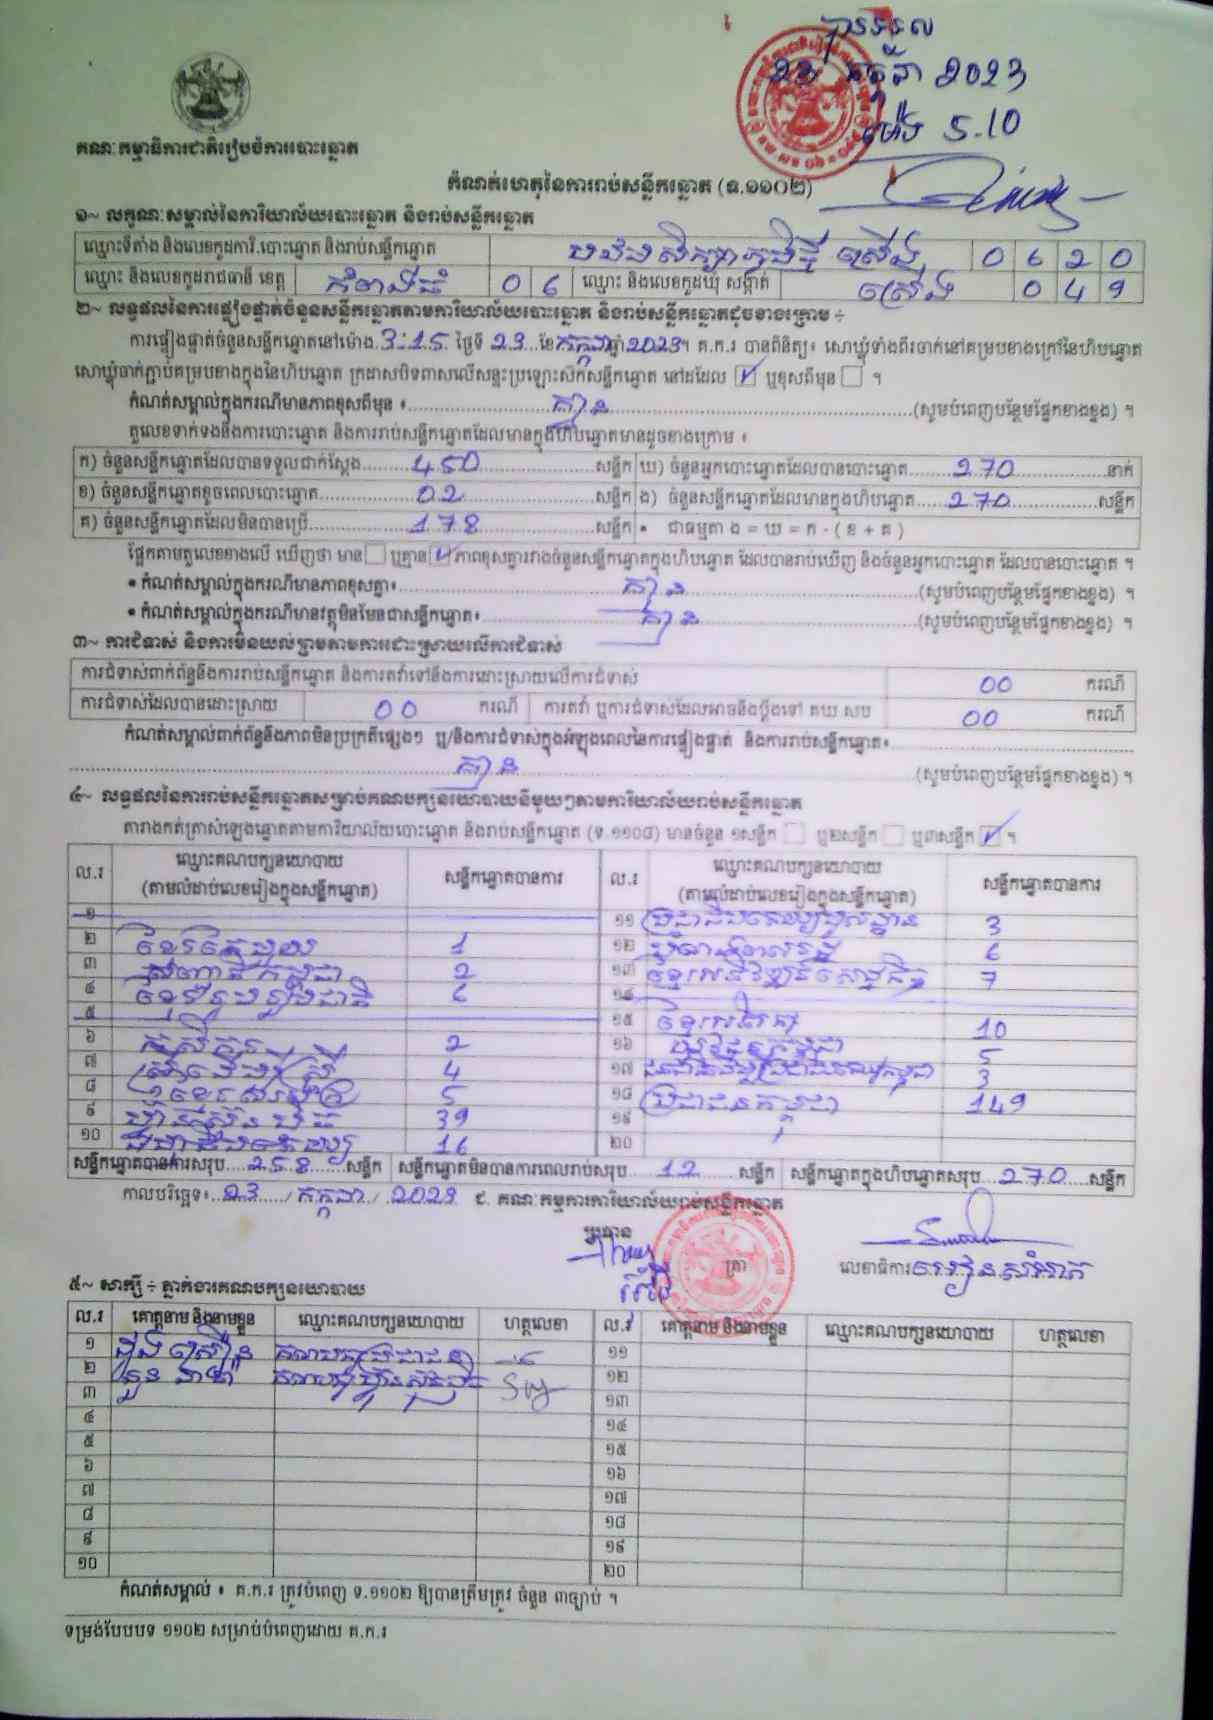 បានទទួល
23 កក្កដា 2023
ម៉ោង 5.10
គណៈកម្មាធិការជាតិរៀបចំការបោះឆ្នោត
កំណត់ហេតុនៃការរាប់សន្លឹកឆ្នោត (ទ.១១០២)
១~ លក្ខណៈសម្គាល់នៃការិយាល័យបោះឆ្នោត និងរាប់សន្លឹកឆ្នោត
ឈ្មោះទីតាំង និងលេខកូដការិ.បោះឆ្នោត និងរាប់សន្លឹកឆ្នោត 0 6 2 0
ឈ្មោះ និងលេខកូដរាជធានី ខេត្ត កំពង់ធំ 0 6 ឈ្មោះ និងលេខកូដឃុំ សង្កាត់ ស្រើង 0 4 9
២~ លទ្ធផលនៃការផ្ទៀងផ្ទាត់ចំនួនសន្លឹកឆ្នោតតាមការិយាល័យបោះឆ្នោត និងរាប់សន្លឹកឆ្នោតដូចខាងក្រោម ÷
ការផ្ទៀងផ្ទាត់ចំនួនសន្លឹកឆ្នោតនៅម៉ោង 3:15 ថ្ងៃទី 23 ខែ កក្កដា ឆ្នាំ 2023។ គ.ក.រ បានពិនិត្យ៖ សោឃ្មុំទាំងពីរចាក់នៅគម្របខាងក្រៅនៃហិបឆ្នោត
សោឃ្មុំចាក់ភ្ជាប់គម្របខាងក្នុងនៃហិបឆ្នោត ក្រដាសបិទពាសលើសន្ទះប្រឡោះសិកសន្លឹកឆ្នោត នៅដដែល ☑ ឬខុសពីមុន ☐ ។
កំណត់សម្គាល់ក្នុងករណីមានភាពខុសពីមុន ៖ គ្មាន (សូមបំពេញបន្ថែមផ្នែកខាងខ្នង) ។
តួលេខទាក់ទងនឹងការបោះឆ្នោត និងការរាប់សន្លឹកឆ្នោតដែលមានក្នុងហិបឆ្នោតមានដូចខាងក្រោម ៖
ក) ចំនួនសន្លឹកឆ្នោតដែលបានទទួលជាក់ស្តែង 450 សន្លឹក ឃ) ចំនួនអ្នកបោះឆ្នោតដែលបានបោះឆ្នោត 270 នាក់
ខ) ចំនួនសន្លឹកឆ្នោតខូចពេលបោះឆ្នោត 02 សន្លឹក ង) ចំនួនសន្លឹកឆ្នោតដែលមានក្នុងហិបឆ្នោត 270 សន្លឹក
គ) ចំនួនសន្លឹកឆ្នោតដែលមិនបានប្រើ 178 សន្លឹក • ជាធម្មតា ង = ឃ = ក - ( ខ + គ )
ផ្អែកតាមតួលេខខាងលើ ឃើញថា មាន ☐ ឬគ្មាន ☑ ភាពខុសគ្នារវាងចំនួនសន្លឹកឆ្នោតក្នុងហិបឆ្នោត ដែលបានរាប់ឃើញ និងចំនួនអ្នកបោះឆ្នោត ដែលបានបោះឆ្នោត ។
• កំណត់សម្គាល់ក្នុងករណីមានភាពខុសគ្នា៖ គ្មាន (សូមបំពេញបន្ថែមផ្នែកខាងខ្នង) ។
• កំណត់សម្គាល់ក្នុងករណីមានវត្ថុមិនមែនជាសន្លឹកឆ្នោត៖ គ្មាន (សូមបំពេញបន្ថែមផ្នែកខាងខ្នង) ។
៣~ ការជំទាស់ និងការមិនយល់ព្រមតាមការដោះស្រាយលើការជំទាស់
ការជំទាស់ពាក់ព័ន្ធនឹងការរាប់សន្លឹកឆ្នោត និងការតវ៉ាទៅនឹងការដោះស្រាយលើការជំទាស់ 00 ករណី
ការជំទាស់ដែលបានដោះស្រាយ 00 ករណី ការតវ៉ា ឬការជំទាស់ដែលអាចនឹងប្តឹងទៅ គឃ សប 00 ករណី
កំណត់សម្គាល់ពាក់ព័ន្ធនឹងភាពមិនប្រក្រតីផ្សេងៗ ឬ/និងការជំទាស់ក្នុងអំឡុងពេលនៃការផ្ទៀងផ្ទាត់ និងការរាប់សន្លឹកឆ្នោត៖
គ្មាន (សូមបំពេញបន្ថែមផ្នែកខាងខ្នង) ។
៤~ លទ្ធផលនៃការរាប់សន្លឹកឆ្នោតសម្រាប់គណបក្សនយោបាយនីមួយៗតាមការិយាល័យរាប់សន្លឹកឆ្នោត
តារាងកត់ត្រាសំឡេងឆ្នោតតាមការិយាល័យបោះឆ្នោត និងរាប់សន្លឹកឆ្នោត (ទ.១១០៨) មានចំនួន ១សន្លឹក ☐ ឬ២សន្លឹក ☐ ឬ៣សន្លឹក ☑ ។
ល.រ ឈ្មោះគណបក្សនយោបាយ (តាមលំដាប់លេខរៀងក្នុងសន្លឹកឆ្នោត) សន្លឹកឆ្នោតបានការ ល.រ ឈ្មោះគណបក្សនយោបាយ (តាមលំដាប់លេខរៀងក្នុងសន្លឹកឆ្នោត) សន្លឹកឆ្នោតបានការ
១ ១១ 3
២ 1 ១២ 6
៣ 2 ១៣ 7
៤ ខ្មែររួបរួមជាតិ 6 ១៤
៥ ១៥ 10
៦ កសិករ 2 ១៦ 5
៧ 4 ១៧ 3
៨ 5 ១៨ ប្រជាជនកម្ពុជា 149
៩ ហ៊្វុនស៊ិនប៉ិច 39 ១៩
១០ 16 ២០
សន្លឹកឆ្នោតបានការសរុប 258 សន្លឹក សន្លឹកឆ្នោតមិនបានការពេលរាប់សរុប 12 សន្លឹក សន្លឹកឆ្នោតក្នុងហិបឆ្នោតសរុប 270 សន្លឹក
កាលបរិច្ឆេទ៖ 23 / កក្កដា / 2023 ជ. គណៈកម្មការការិយាល័យរាប់សន្លឹកឆ្នោត
ប្រធាន
ត្រា លេខាធិការ
៥~ សាក្សី ÷ ភ្នាក់ងារគណបក្សនយោបាយ
ល.រ គោត្តនាម និងនាមខ្លួន ឈ្មោះគណបក្សនយោបាយ ហត្ថលេខា ល.រ គោត្តនាម និងនាមខ្លួន ឈ្មោះគណបក្សនយោបាយ ហត្ថលេខា
១ គណបក្សប្រជាជន ១១
២ គណបក្សហ៊្វុនស៊ិនប៉ិច ១២
៣ ១៣
៤ ១៤
៥ ១៥
៦ ១៦
៧ ១៧
៨ ១៨
៩ ១៩
១០ ២០
កំណត់សម្គាល់ ៖ គ.ក.រ ត្រូវបំពេញ ទ.១១០២ ឱ្យបានត្រឹមត្រូវ ចំនួន ៣ច្បាប់ ។
ទម្រង់បែបបទ ១១០២ សម្រាប់បំពេញដោយ គ.ក.រ